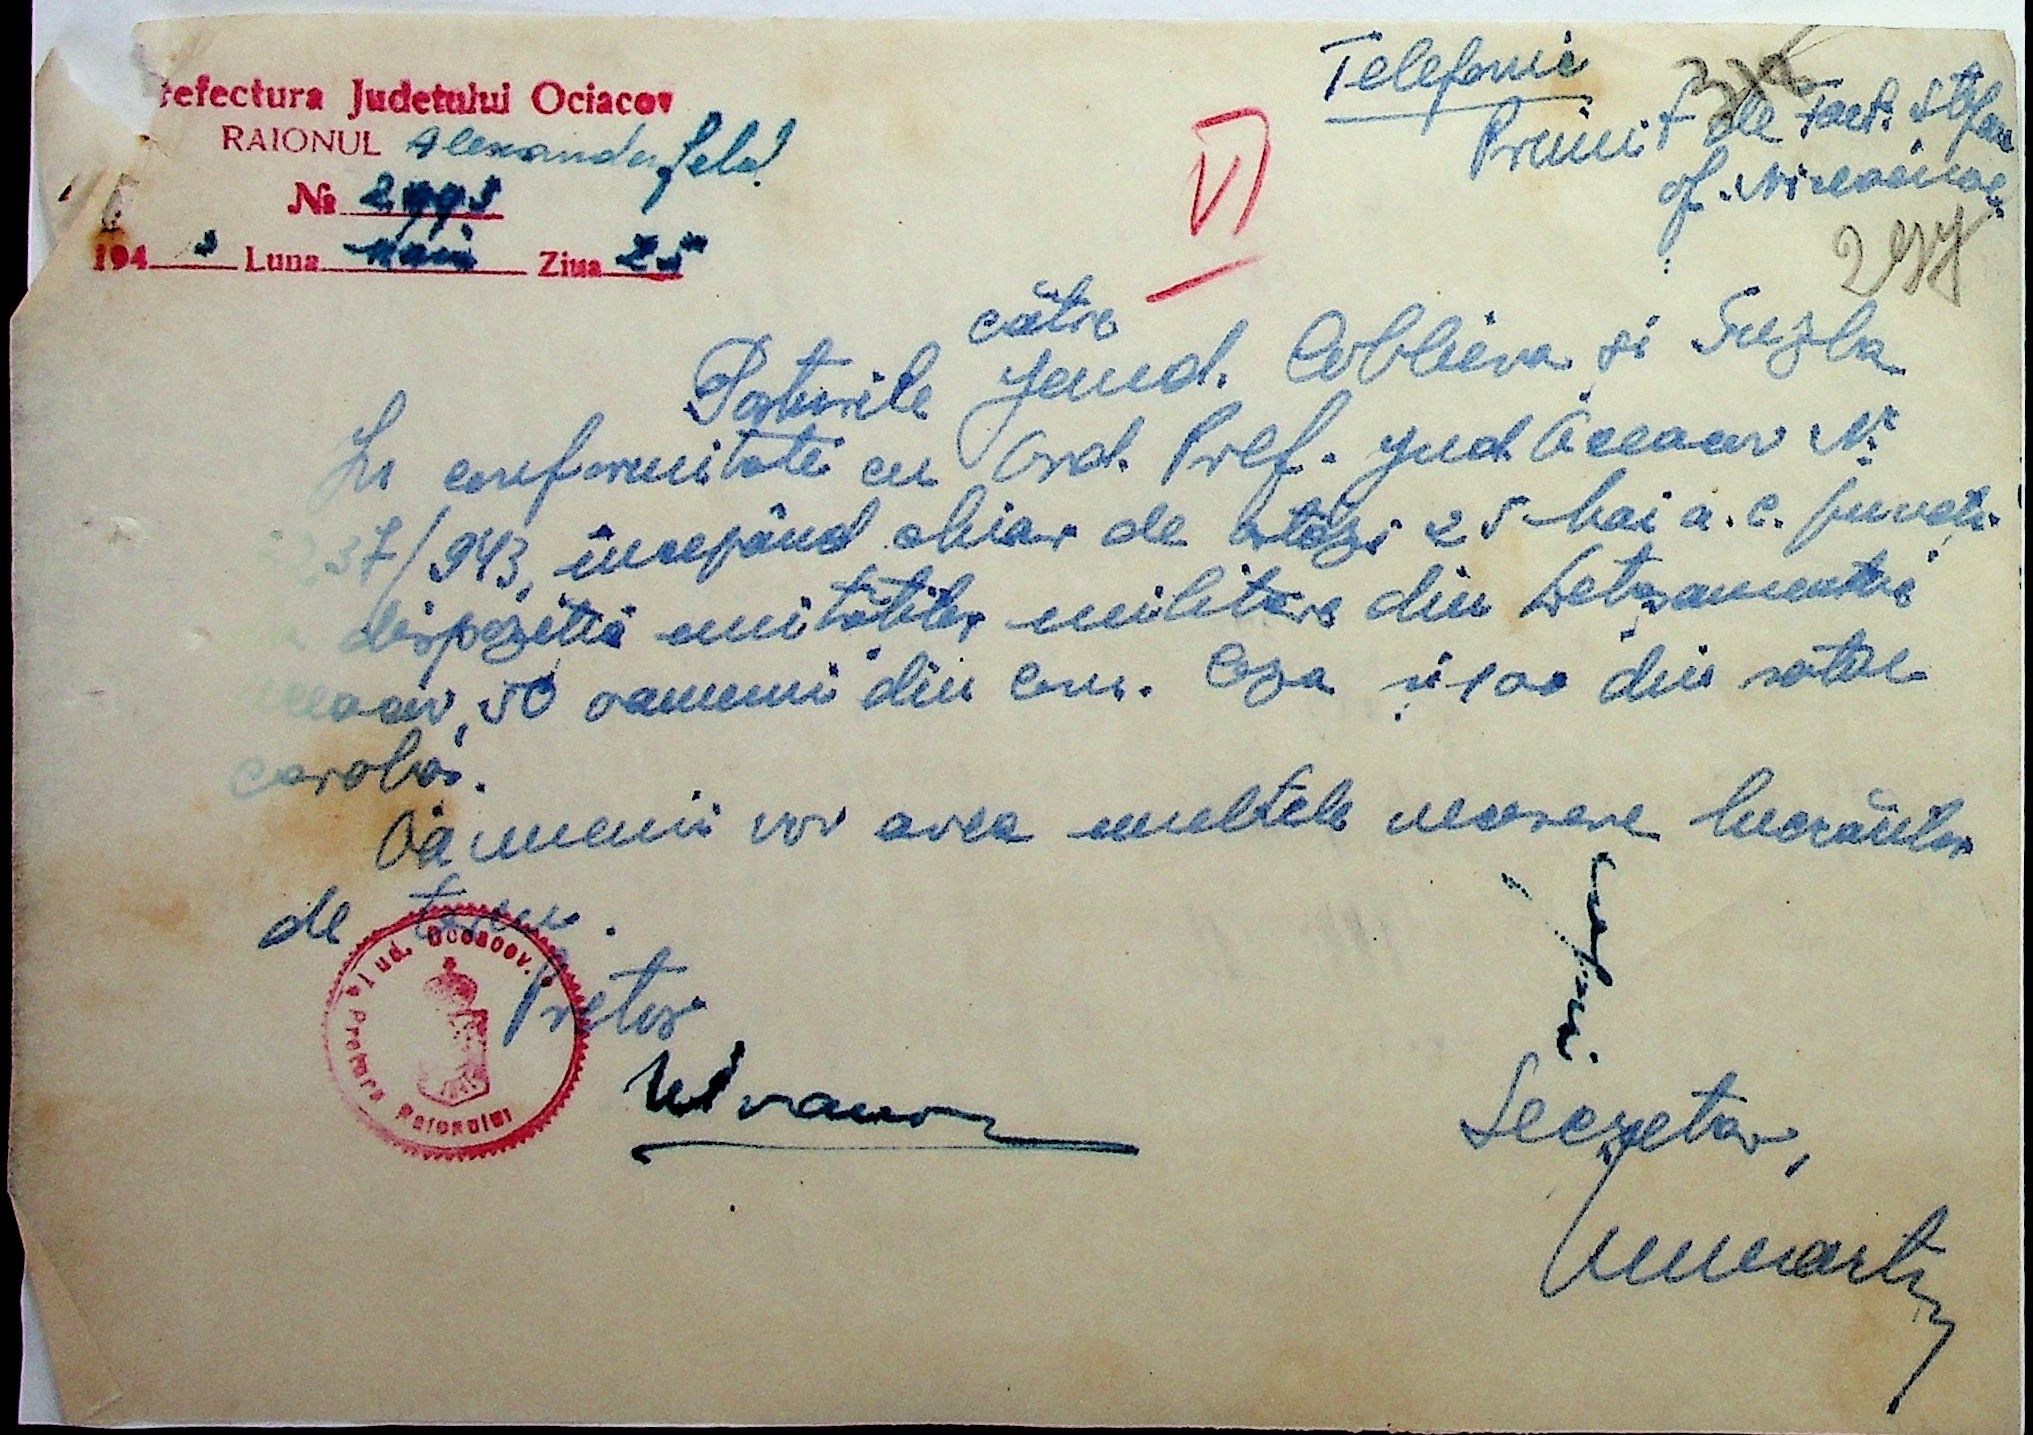 refectura Judetului Ociacov
RAIONUL Alexanderfeld
№ 2993
1943 Luna Mai Ziua 25
Telefonic
Primit de
of.
VI
297
către
Posturile Jand. Coblieva și Suzla
In conformitate cu Ord. Pref. Jud. Oceacov Nr
37/943, începând chiar de astăzi 25 Mai a. c. puneți
dispoziția unităților militare din Detașamentul
ceacov, 50 oameni din com. Coza și 100 din satul
caroba.
Oamenii vor avea uneltele necesare lucrărilor
de teren.
Pretor
Jud. Oceacov.
Pretura Raionului
Secretar,